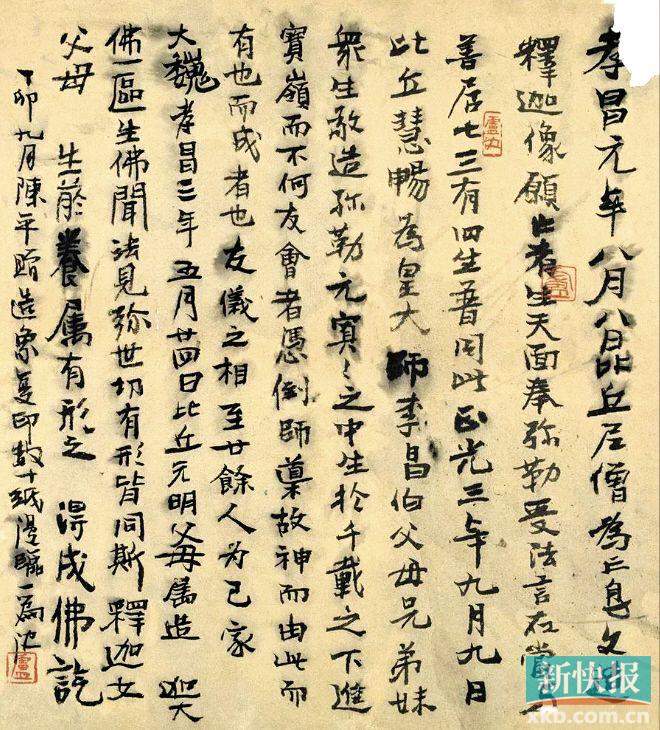 孝昌元年八月八日比丘尼僧為亡息文
釋迦像願亡者生天面奉弥勒受法言在當
善居七三有四生普同此正光三年九月九日
比丘慧暢為皇大師李昌伯父母兄弟妹
衆生敬造弥勒元寘〻之中生於千載之下進
寶嶺而不何友會者憑倒師稟故神而由此而
有也而成者也友儀之相至廿餘人为已家
大魏孝昌三年五月廿四日比丘元明父母屬造迦大
佛一區生佛聞法見弥世切有形皆同斯釋迦文
父母生蔡養属有形之淂成佛記
丁卯九月陳年贈造象复印数十紙漫臨一為沱
盧
新快报
xkb.com.cn